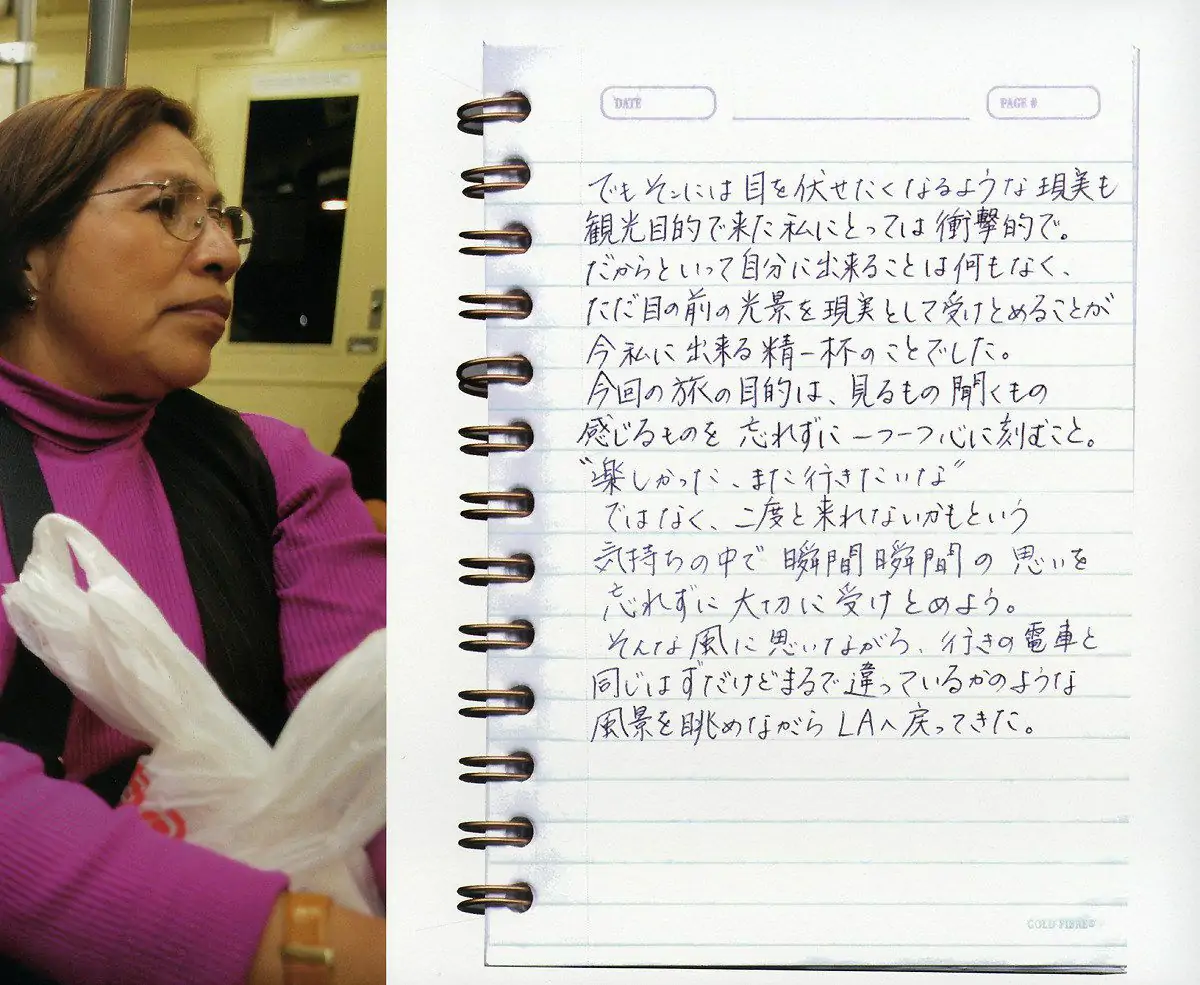 DATE
PAGE #
でもそこには目を伏せたくなるような現実も
観光目的で来た私にとっては衝撃的で。
だからといって自分に出来ることは何もなく、
ただ目の前の光景を現実として受けとめることが
今私に出来る精一杯のことでした。
今回の旅の目的は、見るもの聞くもの
感じるものを忘れずに一つ一つ心に刻むこと。
"楽しかった、また行きたいな"
ではなく、二度と来れないかもという
気持ちの中で瞬間瞬間の思いを
忘れずに大切に受けとめよう。
そんな風に思いながら、行きの電車と
同じはずだけどまるで違っているかのような
風景を眺めながらLAへ戻ってきた。
GOLD FIBRE®